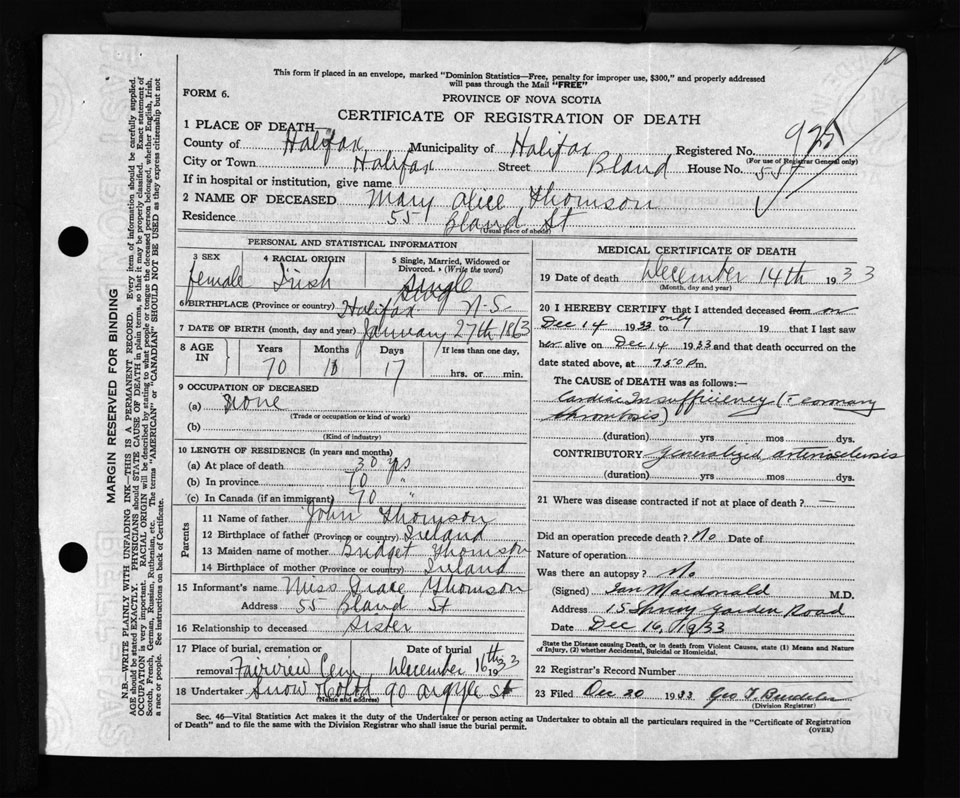 This form if placed in an envelope, marked "Dominion Statistics—Free, penalty for improper use, $300," and properly addressed
will pass through the Mail "FREE"
FORM 6.
PROVINCE OF NOVA SCOTIA
CERTIFICATE OF REGISTRATION OF DEATH
1 PLACE OF DEATH
County of Halifax Municipality of Halifax Registered No. 925
(For use of Registrar General only)
City or Town Halifax Street Bland House No. 55
If in hospital or institution, give name
2 NAME OF DECEASED Mary Alice Thomson
Residence 55 Bland St
(Usual place of abode)
PERSONAL AND STATISTICAL INFORMATION
3 SEX female
4 RACIAL ORIGIN Irish
5 Single, Married, Widowed or Divorced. (Write the word) Single
6 BIRTHPLACE (Province or country) Halifax N.S.
7 DATE OF BIRTH (month, day and year) January 27th 1863
8 AGE IN Years Months Days If less than one day,
70 10 17 hrs. or min.
9 OCCUPATION OF DECEASED
(a) None
(Trade or occupation or kind of work)
(b)
(Kind of industry)
10 LENGTH OF RESIDENCE (in years and months)
(a) At place of death 30 yrs
(b) In province 70 "
(c) In Canada (if an immigrant) 70 "
Parents
11 Name of father John Thomson
12 Birthplace of father (Province or country) Ireland
13 Maiden name of mother Bridget Thomson
14 Birthplace of mother (Province or country) Ireland
15 Informant's name Miss Grace Thomson
Address 55 Bland St
16 Relationship to deceased Sister
17 Place of burial, cremation or removal Fairview Cem
Date of burial December 16th 1933
18 Undertaker Snow & Co Ltd 90 Argyle St
(Name and address)
MEDICAL CERTIFICATE OF DEATH
19 Date of death December 14th 1933
(Month, day and year)
20 I HEREBY CERTIFY that I attended deceased from on
Dec 14 1933 to only 19 that I last saw
her alive on Dec 14 1933 and that death occurred on the
date stated above, at 7.50 P.m.
The CAUSE OF DEATH was as follows:—
Cardiac Insufficiency (? coronary
thrombosis)
(duration) yrs mos dys.
CONTRIBUTORY generalized arteriosclerosis
(duration) yrs mos dys.
21 Where was disease contracted if not at place of death? —
Did an operation precede death? No Date of
Nature of operation
Was there an autopsy? No
(Signed) Ian Macdonald M.D.
Address 15 Spring Garden Road
Date Dec 16, 1933
State the Disease causing Death, or in death from Violent Causes, state (1) Means and Nature
of Injury, (2) whether Accidental, Suicidal or Homicidal.
22 Registrar's Record Number
23 Filed Dec 20 1933 Geo T.
(Division Registrar)
Sec. 46—Vital Statistics Act makes it the duty of the Undertaker or person acting as Undertaker to obtain all the particulars required in the "Certificate of Registration
of Death" and to file the same with the Division Registrar who shall issue the burial permit.
(OVER)
MARGIN RESERVED FOR BINDING
N.B.—WRITE PLAINLY WITH UNFADING INK—THIS IS A PERMANENT RECORD. Every item of information should be carefully supplied.
AGE should be stated EXACTLY. PHYSICIANS should STATE CAUSE OF DEATH in plain terms, so that it may be properly classified. Exact statement of
OCCUPATION is very important. RACIAL ORIGIN will be described by stating to what people or tongue the deceased person belonged, whether English, Irish,
Scotch, French, German, Russian, Ruthenian, etc. The terms "AMERICAN" or "CANADIAN" SHOULD NOT BE USED as they express citizenship but not
a race or people. See instructions on back of Certificate.